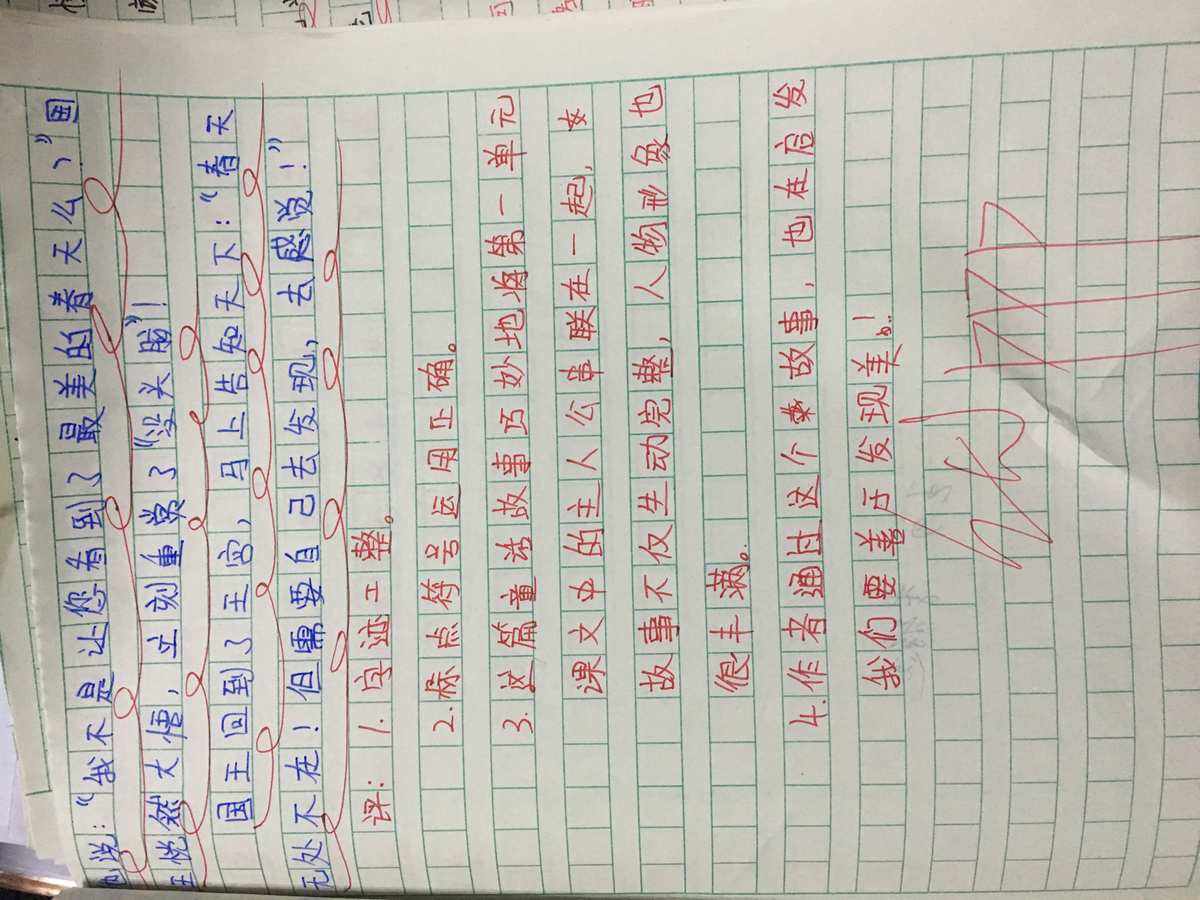 他说:“我不是让您看到了最美的春天么,”国
王悦然大悟,立刻重赏了“没头脑”!
国王回到了王宫,马上告知天下:“春天
无处不在!但需要自己去发现,去感觉!”
评:1.字迹工整。
2.标点符号运用正确。
3.这篇童话故事巧妙地将第一单元
课文中的主人公串联在一起,女
故事不仅生动完整,人物形象也
很丰满。
4.作者通过这个故事,也在启发
我们要善于发现美。!